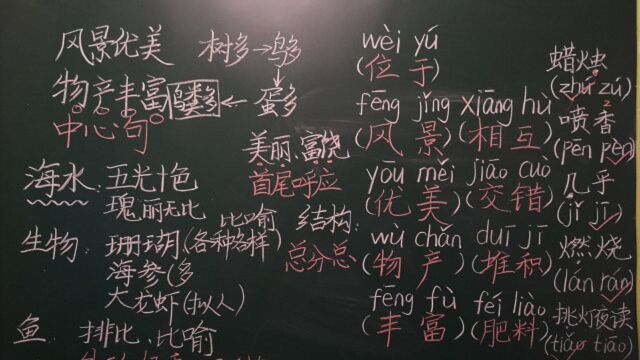 风景优美 树多→鸟多
物产丰富 鸟粪多←蛋多
中心句
美丽、富饶
首尾呼应
海水:五光十色
瑰丽无比
比喻
生物:珊瑚(各种各样)
海参(多
大龙虾(拟人)
鱼:排比、比喻
结构:
总分总
wèi yú
(位于)
fēng jǐng xiāng hù
(风景)(相互)
yōu měi jiāo cuò
(优美)(交错)
wù chǎn duī jī
(物产)(堆积)
fēng fù féi liào
(丰富)(肥料)
蜡烛
(zhú zú)
喷香
(pēn pèn)
几乎
(jǐ jī)
燃烧
(lán rán)
挑灯夜读
(tiǎo tiāo)